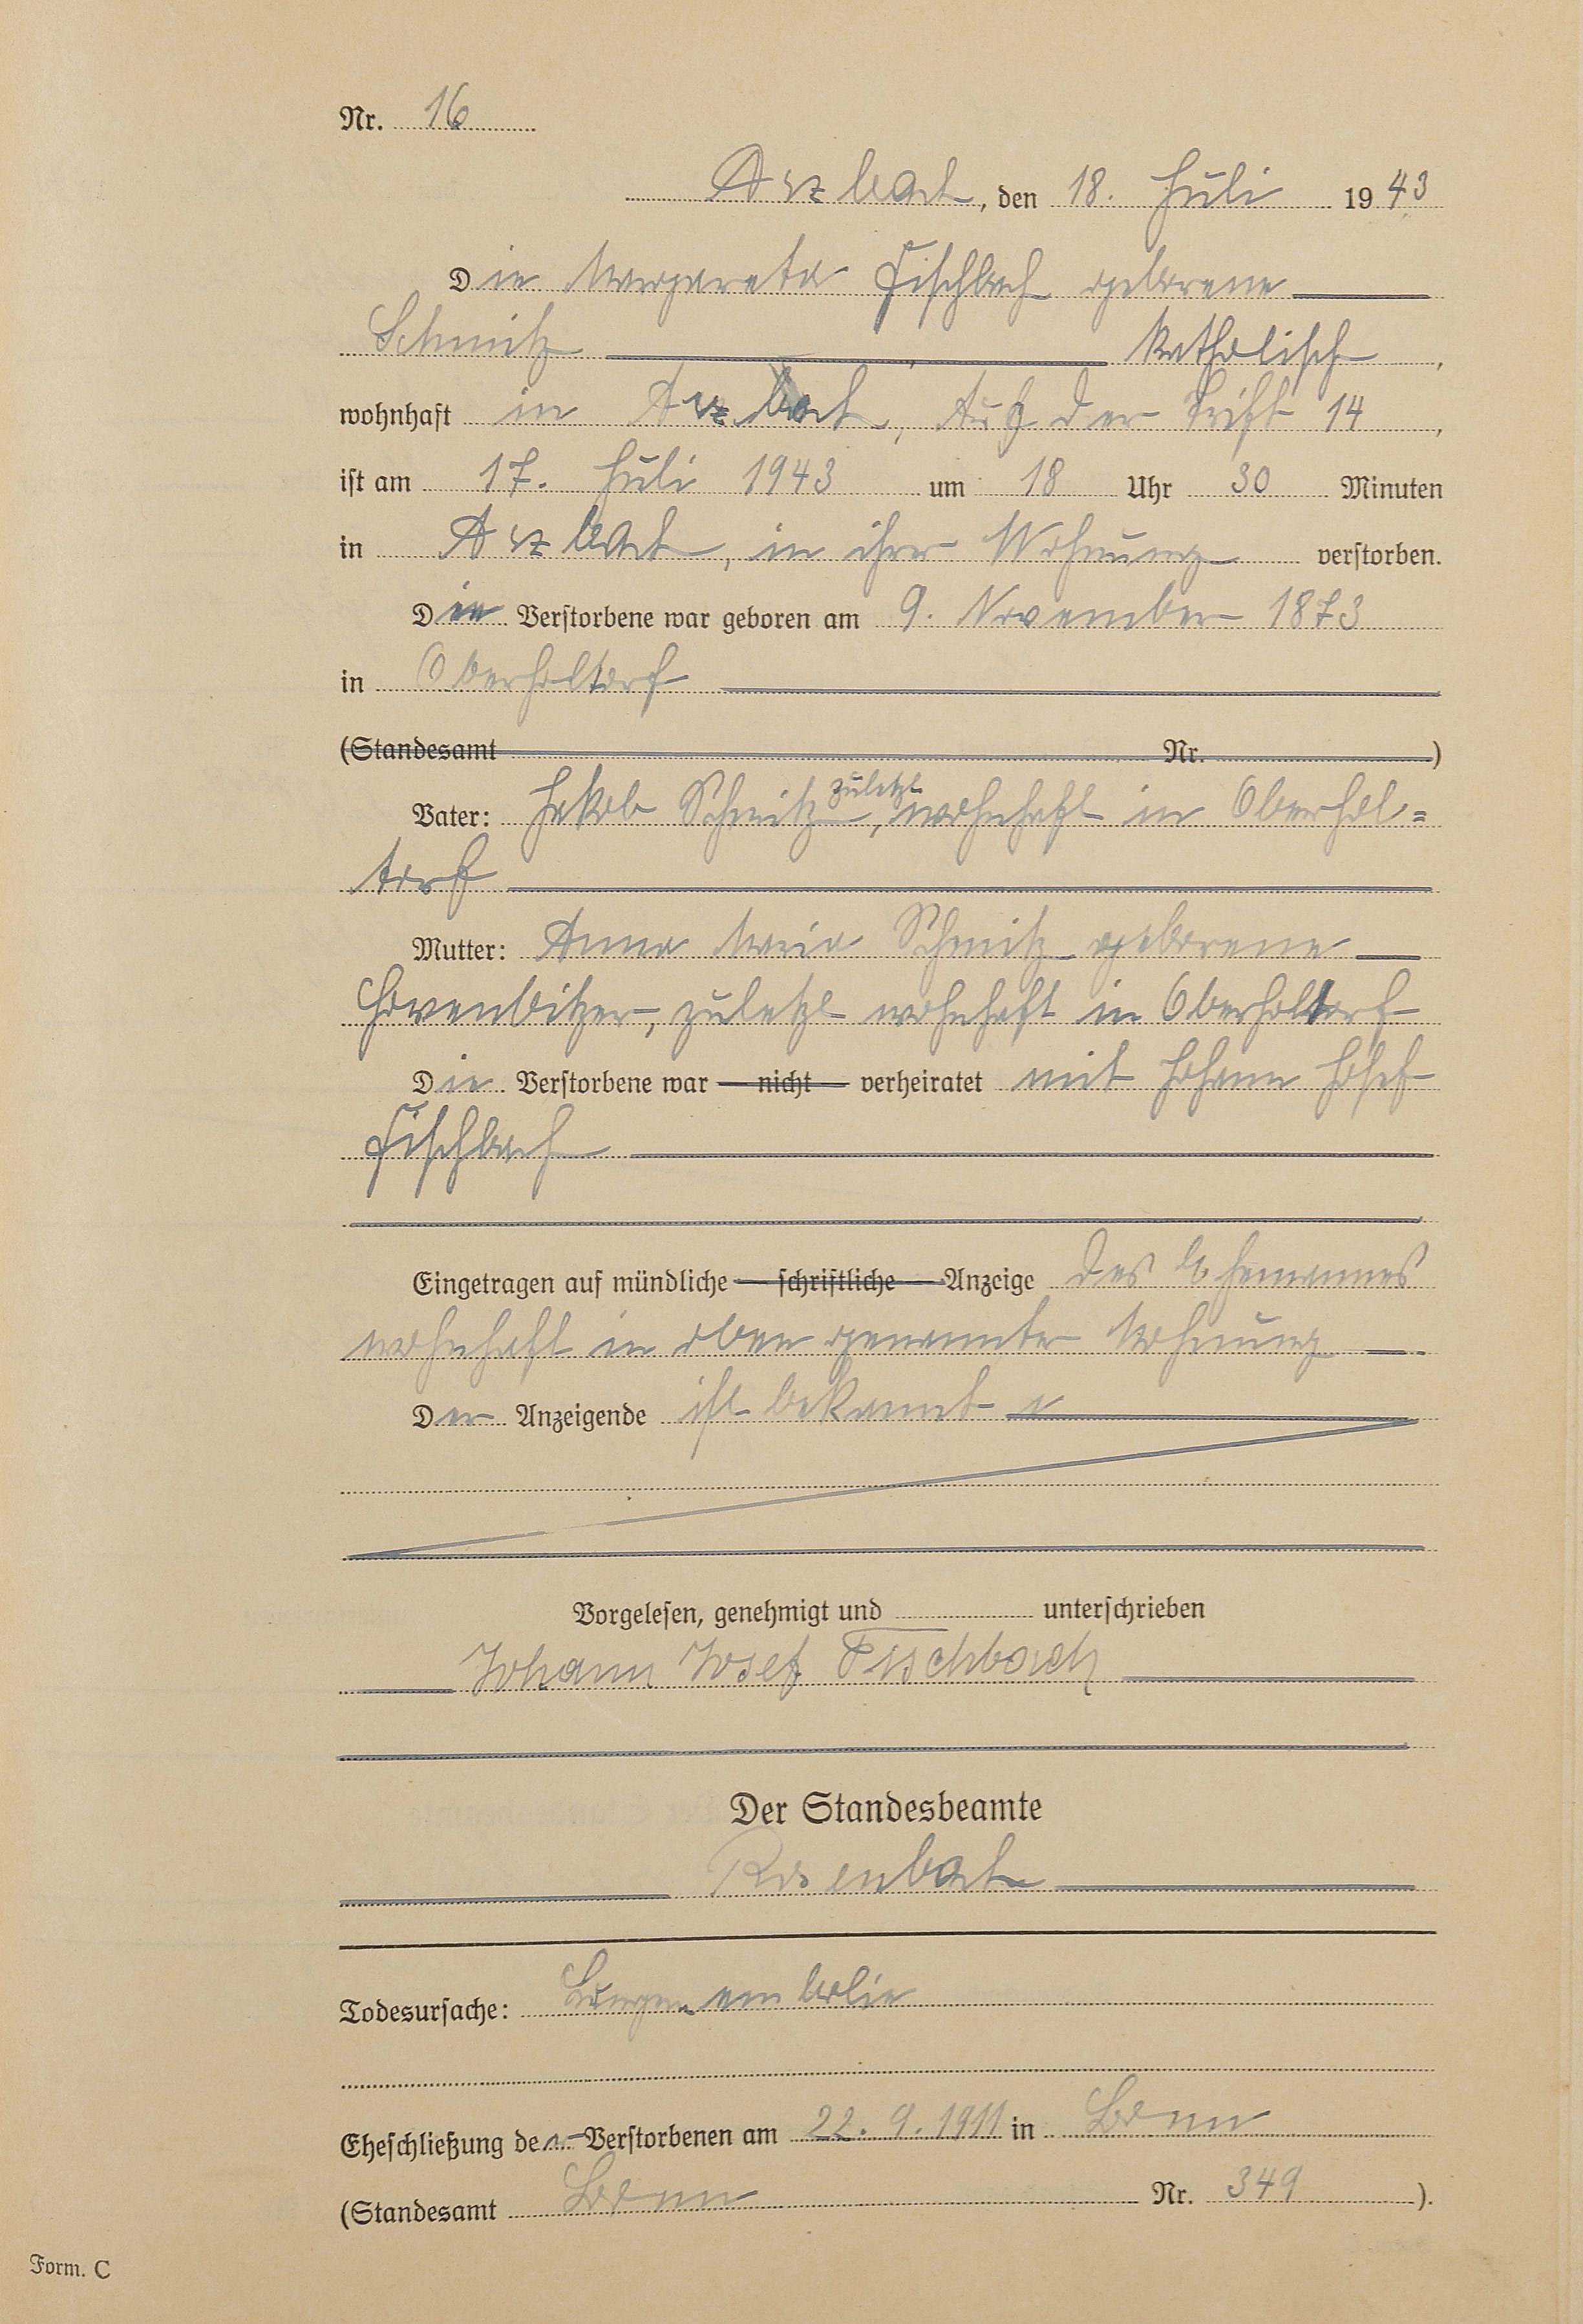 Nr. 16
Arzbach, den 18. Juli 1943
Die Margareta Fischbach geborene
Schmitz katholisch,
wohnhaft in Arzbach, Auf der Trift 14,
ist am 17. Juli 1943 um 18 Uhr 30 Minuten
in Arzbach, in ihrer Wohnung verstorben.
Die Verstorbene war geboren am 9. November 1873
in Oberholtorf
(Standesamt Nr. )
Vater: Jakob Schmitz, zuletzt wohnhaft in Oberhol=
torf
Mutter: Anna Maria Schmitz geborene
Hovenbitzer, zuletzt wohnhaft in Oberholtorf
Die Verstorbene war nicht verheiratet mit Johann Josef
Fischbach
Eingetragen auf mündliche schriftliche Anzeige des Ehemannes
wohnhaft in oben genannter Wohnung
Der Anzeigende ist bekannt
Vorgelesen, genehmigt und unterschrieben
Johann Josef Fischbach
Der Standesbeamte
Rosenbach
Todesursache: Lungenembolie
Eheschließung der Verstorbenen am 22. 9. 1911 in Bonn
(Standesamt Bonn Nr. 349 ).
Form. C